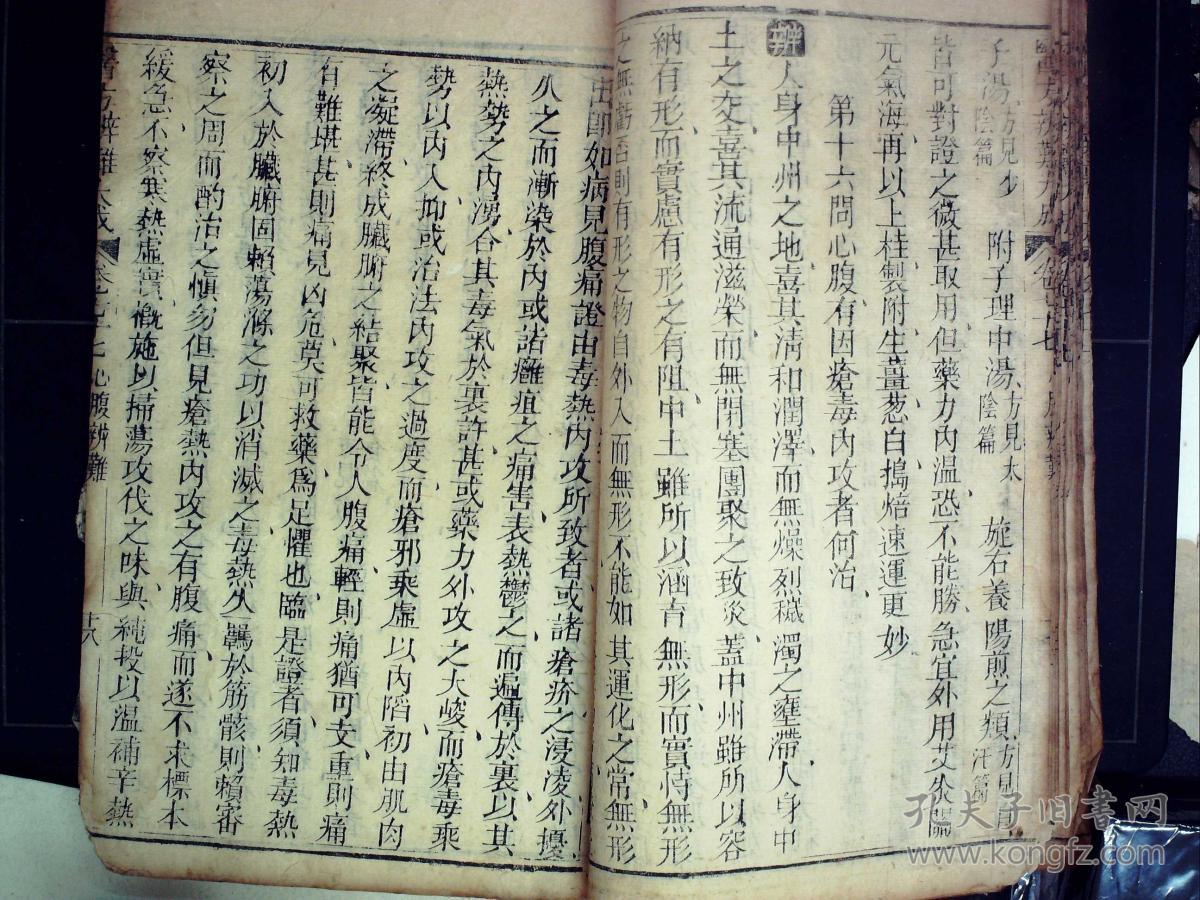 子湯方見少陰篇 附子理中湯方見太陰篇 旋石養陽煎之類方見
皆可對證之微甚取用但藥力內溫恐不能勝急宜外用艾灸關
元氣海再以上桂製附生薑葱白搗焙速運更妙
第十六問心腹有因瘡毒內攻者何治
辨人身中州之地喜其清和潤澤而無燥烈穢濁之壅滯人身中
土之交喜其流通滋榮而無閉塞團聚之致災蓋中州雖所以容
納有形而實慮有形之有阻中土雖所以涵育無形而實恃無形
之無虧否則有形之物自外入而無形不能如其運化之常無形
如病見腹痛證由毒熱內攻所致者或諸瘡疥之浸淩外擾
久之而漸染於內或諸癰疽之痛害表熱鬱之而遍傳於裏以其
熱勢之內湧合其毒氣於裏許甚或藥力外攻之大峻而瘡毒乘
勢以內入抑或治法內攻之過度而瘡邪乘虛以內陷初由肌肉
之凝滯終成臟腑之結聚皆能令人腹痛輕則痛猶可支重則痛
有難堪甚則痛見凶危莫可救藥爲足懼也臨是證者須知毒熱
初入於臟腑固賴蕩滌之功以消滅之毒熱久羈於筋骸則賴審
察之周而酌治之慎勿但見瘡熱內攻之有腹痛而遂不求標本
緩急不察寒熱虛實概施以掃蕩攻伐之味與純投以溫補辛熱
醫方辨難大成 心腹辨難 十八
孔夫子旧书网
www.kongfz.com